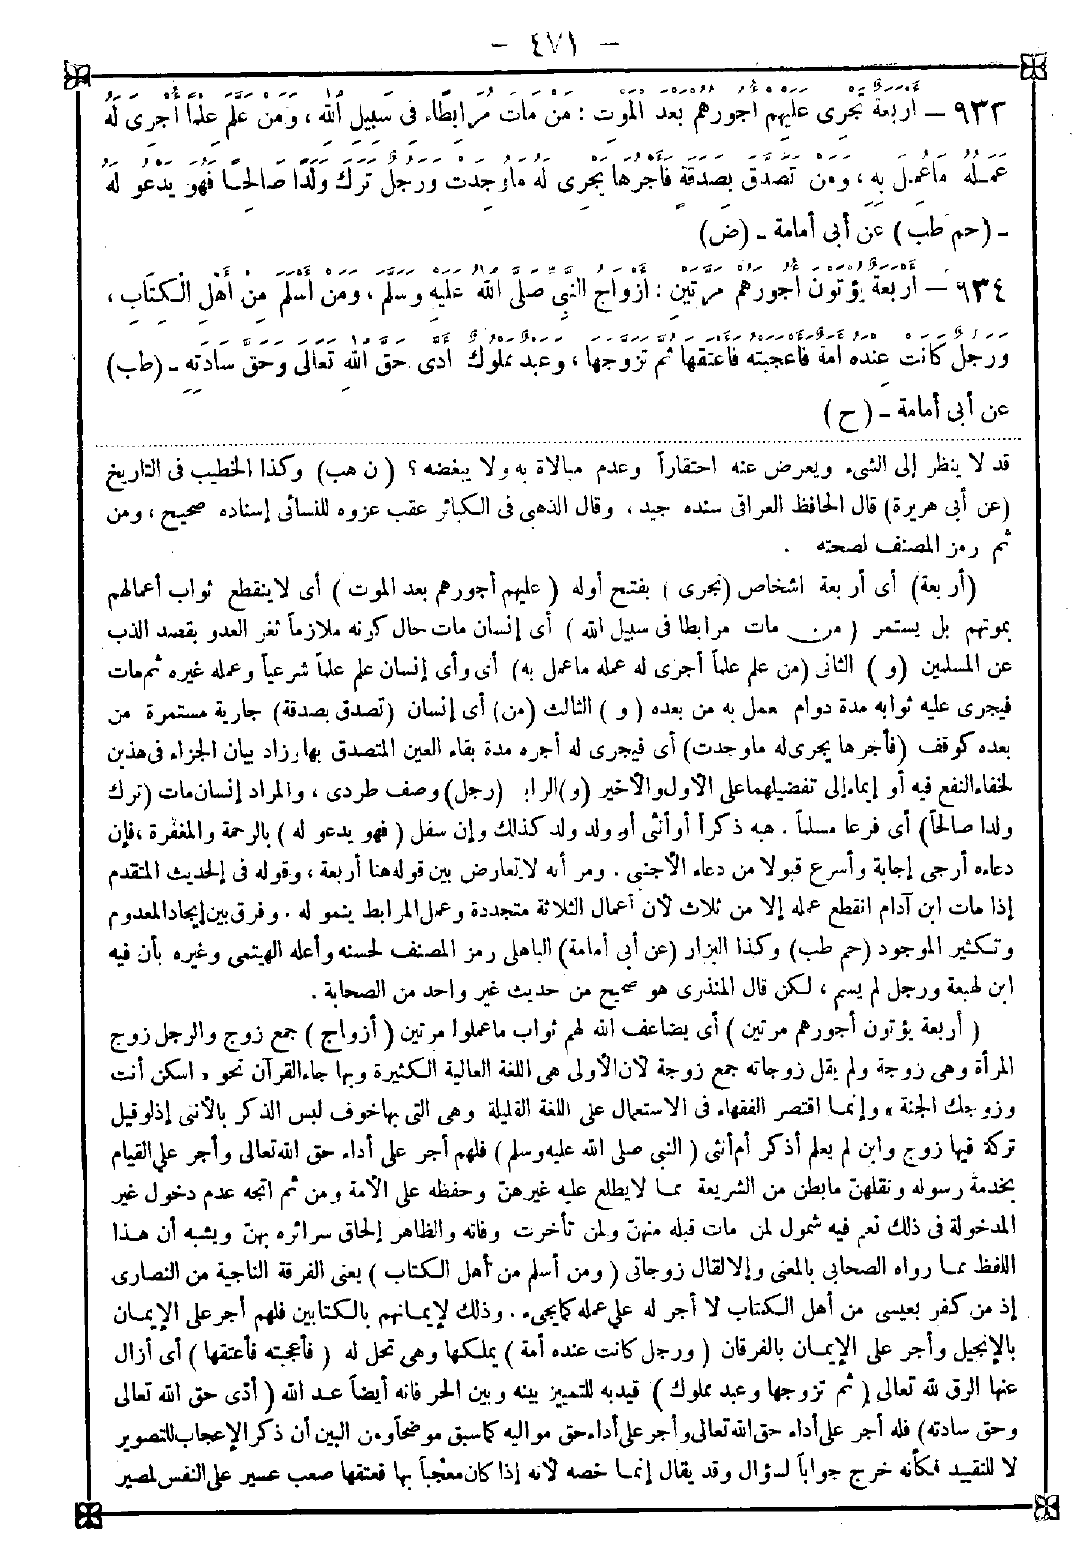 - ٤٧١ -
٩٣٣ - أَرْبَعَةٌ تَجْرِى عَلَيْهِمْ أُجُورُهُمْ بَعْدَ الْمَوْتِ : مَنْ مَاتَ مُرَابِطًا فِى سَبِيلِ اللهِ ، وَمَنْ عَلَّمَ عِلْمًا أُجْرِىَ لَهُ
عَمَلُهُ مَا عُمِلَ بِهِ ، وَمَنْ تَصَدَّقَ بِصَدَقَةٍ فَأَجْرُهَا يَجْرِى لَهُ مَا وُجِدَتْ وَرَجُلٌ تَرَكَ وَلَدًا صَالِحًا فَهُوَ يَدْعُو لَهُ
- (حم طب) عن أبى أمامة - (ض)
٩٣٤ - أَرْبَعَةٌ يُؤْتَوْنَ أُجُورَهُمْ مَرَّتَيْنِ : أَزْوَاجُ النَّبِىِّ صَلَّى اللهُ عَلَيْهِ وَسَلَّمَ ، وَمَنْ أَسْلَمَ مِنْ أَهْلِ الْكِتَابِ ،
وَرَجُلٌ كَانَتْ عِنْدَهُ أَمَةٌ فَأَعْجَبَتْهُ فَأَعْتَقَهَا ثُمَّ تَزَوَّجَهَا ، وَعَبْدٌ مَمْلُوكٌ أَدَّى حَقَّ اللهِ تَعَالَى وَحَقَّ سَادَتِهِ - (طب)
عن أبى أمامة - (ح)
قد لا ينظر إلى الشىء ويعرض عنه احتقاراً وعدم مبالاة به ولا يبغضه ؟ (ن هب) وكذا الخطيب فى التاريخ
(عن أبى هريرة) قال الحافظ العراقى سنده جيد ، وقال الذهبى فى الكبائر عقب عزوه للنسائى إسناده صحيح ، ومن
ثم رمز المصنف لصحته .
(أربعة) أى أربعة اشخاص (تجرى) بفتح أوله (عليهم أجورهم بعد الموت) أى لا ينقطع ثواب أعمالهم
بموتهم بل يستمر (من مات مرابطا فى سبيل الله) أى إنسان مات حال كونه ملازماً ثغر العدو بقصد الذب
عن المسلمين (و) الثانى (من علم علماً أجرى له عمله ماعمل به) أى وأى إنسان علم علماً شرعياً وعمله غيره ثم مات
فيجرى عليه ثوابه مدة دوام عمل به من بعده (و) الثالث (من) أى إنسان (تصدق بصدقة) جارية مستمرة من
بعده كوقف (فأجرها يجرى له ماوجدت) أى فيجرى له أجره مدة بقاء العين المتصدق بها وزاد بيان الجزاء فى هذين
لخفاء النفع فيه أو إيماء إلى تفضيلهما على الأول والأخير (و) الرابع (رجل) وصف طردى ، والمراد إنسان مات (ترك
ولدا صالحاً) أى فرعا مسلماً . هبه ذكراً أو أنثى أو ولد ولد كذلك وإن سفل (فهو يدعو له) بالرحمة والمغفرة ، فإن
دعاءه أرجى إجابة وأسرع قبولا من دعاء الأجنبى . ومر أنه لاتعارض بين قوله هنا أربعة ، وقوله فى الحديث المتقدم
إذا مات ابن آدام انقطع عمله إلا من ثلاث لأن أعمال الثلاثة متجددة وعمل المرابط ينمو له . وفرق بين إيجاد المعدوم
وتكثير الموجود (حم طب) وكذا البزار (عن أبى أمامة) الباهلى رمز المصنف لحسنه وأعله الهيتمى وغيره بأن فيه
ابن لهيعة ورجل لم يسم ، لكن قال المنذرى هو صحيح من حديث غير واحد من الصحابة .
(أربعة يؤتون أجورهم مرتين) أى يضاعف الله لهم ثواب ماعملوا مرتين (أزواج) جمع زوج والرجل زوج
المرأة وهى زوجة ولم يقل زوجاته جمع زوجة لان الأولى هى اللغة العالية الكثيرة وبها جاء القرآن نحو « اسكن أنت
وزوجك الجنة » وإنما اقتصر الفقهاء فى الاستعمال على اللغة القليلة وهى التى بها خوف لبس الذكر بالأنثى إذ لو قيل
تركة فيها زوج وابن لم يعلم أذكر أم أنثى (النبى صلى الله عليه وسلم) فلهم أجر على أداء حق الله تعالى وأجر على القيام
بخدمة رسوله ونقلهنّ مابطن من الشريعة مما لايطلع عليه غيرهنّ وحفظه على الأمة ومن ثم اتجه عدم دخول غير
المدخولة فى ذلك نعم فيه شمول لمن مات قبله منهنّ ولمن تأخرت وفاته والظاهر إلحاق سرائره بهنّ ويشبه أن هذا
اللفظ مما رواه الصحابى بالمعنى وإلا لقال زوجاتى (ومن أسلم من أهل الكتاب) يعنى الفرقة الناجية من النصارى
إذ من كفر بعيسى من أهل الكتاب لا أجر له على عمله كما يجىء . وذلك لإيمانهم بالكتابين فلهم أجر على الإيمان
بالإنجيل وأجر على الإيمان بالفرقان (ورجل كانت عنده أمة) يملكها وهى تحل له (فأعجبته فأعتقها) أى أزال
عنها الرق لله تعالى (ثم تزوجها وعبد مملوك) قيد به للتمييز بينه وبين الحر فانه أيضاً عبد الله (أدّى حق الله تعالى
وحق سادته) فله أجر على أداء حق الله تعالى وأجر على أداء حق مواليه كما سبق موضحاً ومن البين أن ذكر الإعجاب للتصوير
لا للتقييد فكأنه خرج جواباً لسؤال وقد يقال إنما خصه لأنه إذا كان معْجباً بها فعتقها صعب عسير على النفس لمصير